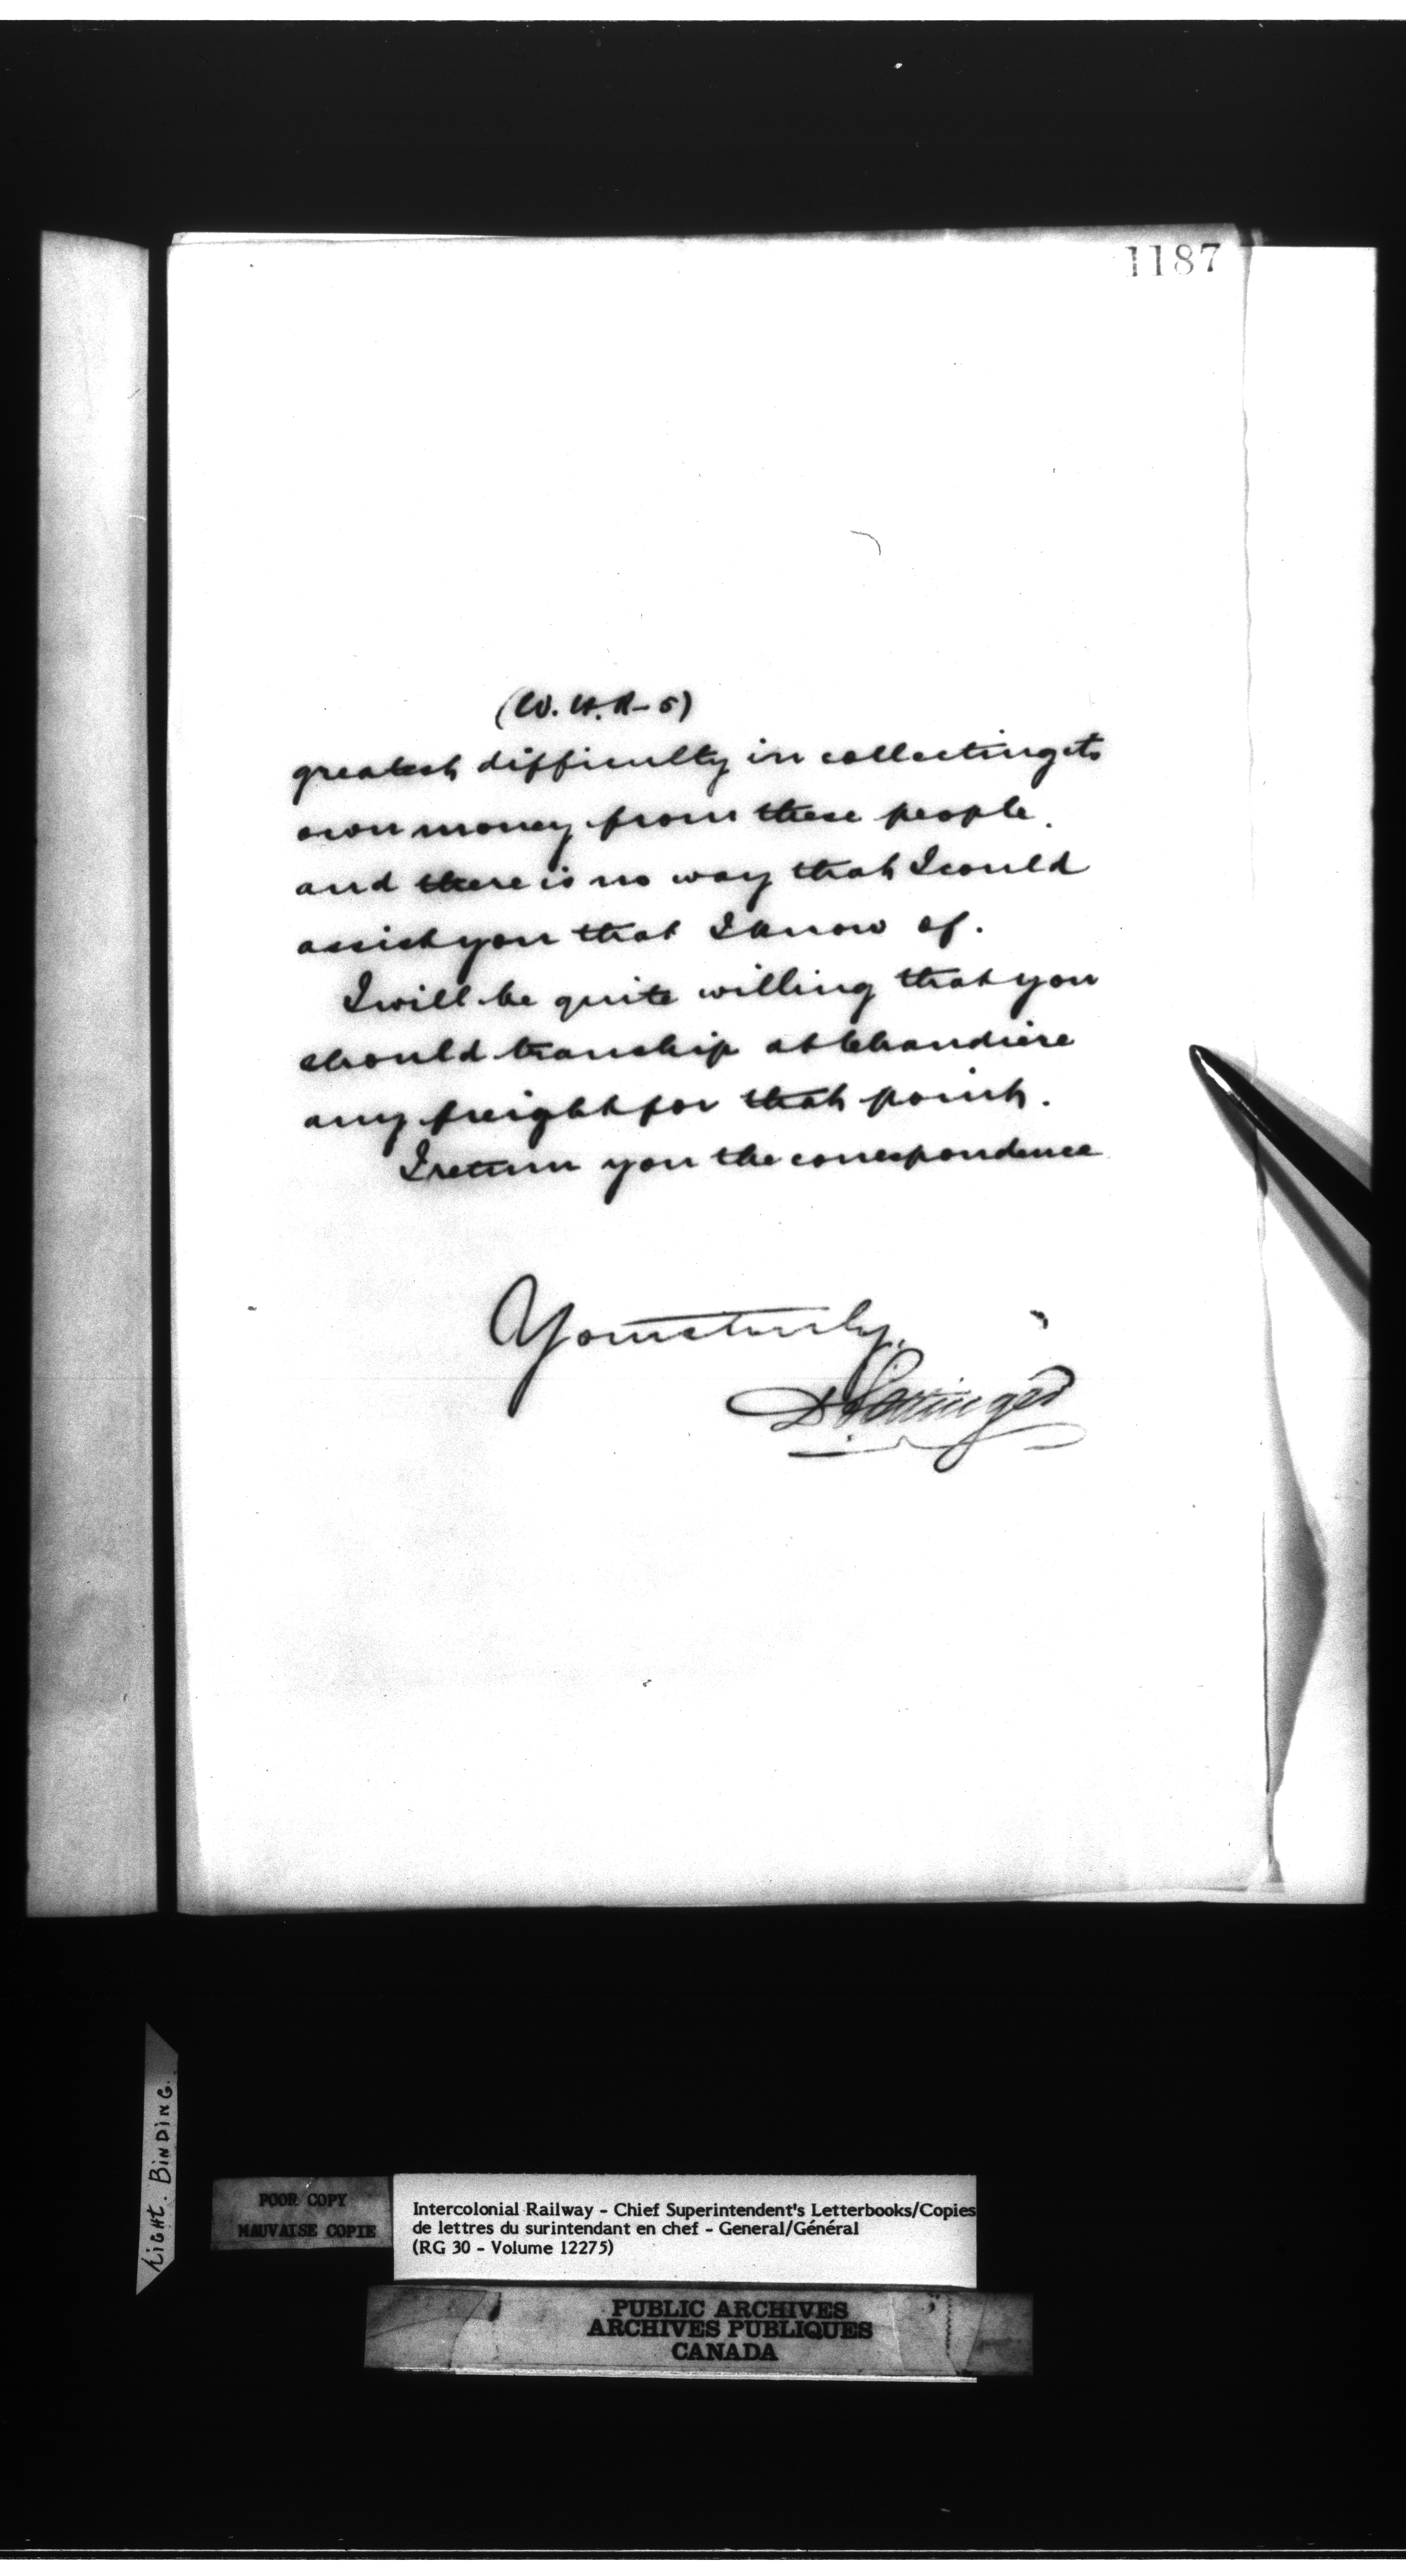 1187
(W.H.R-5)
greatest difficulty in collecting its
own money from these people.
and there is no way that I could
assist you that I know of.
I will be quite willing that you
should tranship at Chaudiere
any freight for that point.
I return you the correspondence
Yours truly,
D Pottinger
Tight. Binding.
POOR COPY
MAUVAISE COPIE
Intercolonial Railway - Chief Superintendent's Letterbooks/Copies
de lettres du surintendant en chef - General/Général
(RG 30 - Volume 12275)
PUBLIC ARCHIVES
ARCHIVES PUBLIQUES
CANADA